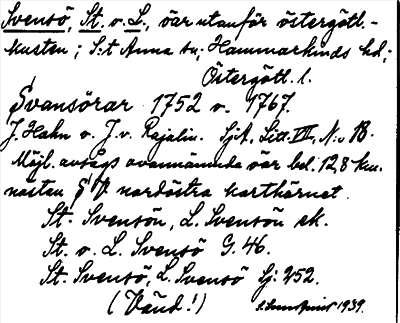 Svensö, St. o. L., öar utanför östergötl.-
kusten; S:t Anna sn, Hammarkinds hd;
Östergötl. l.
Svansörar 1752 o. 1767.
J. Hahn o. J. v. Rajalin. SjA, Litt. VII, N:o 18.
Möjl. avses ovannämnda öar bel. 12,8 km.
nästan nordöstra karthörnet.
St. Svensön, L. Svensön ek.
St. o. L. Svensö G. 46.
St. Svensö, L. Svensö Sj: 252.
(Vänd!) 1939.